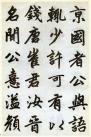 京國者公與語
輒少許可有以
錢唐崔君汝晉
名聞公意溢顏